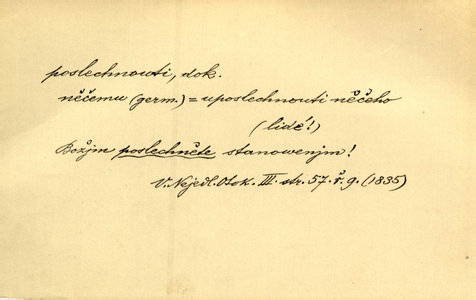 poslechnouti, dok.
něčemu (germ.) = uposlechnouti něčeho
(lidé!)
Božjm poslechněte stanowenjm!
V. Nejedl. Otok. III. str. 57. ř. 9. (1835)